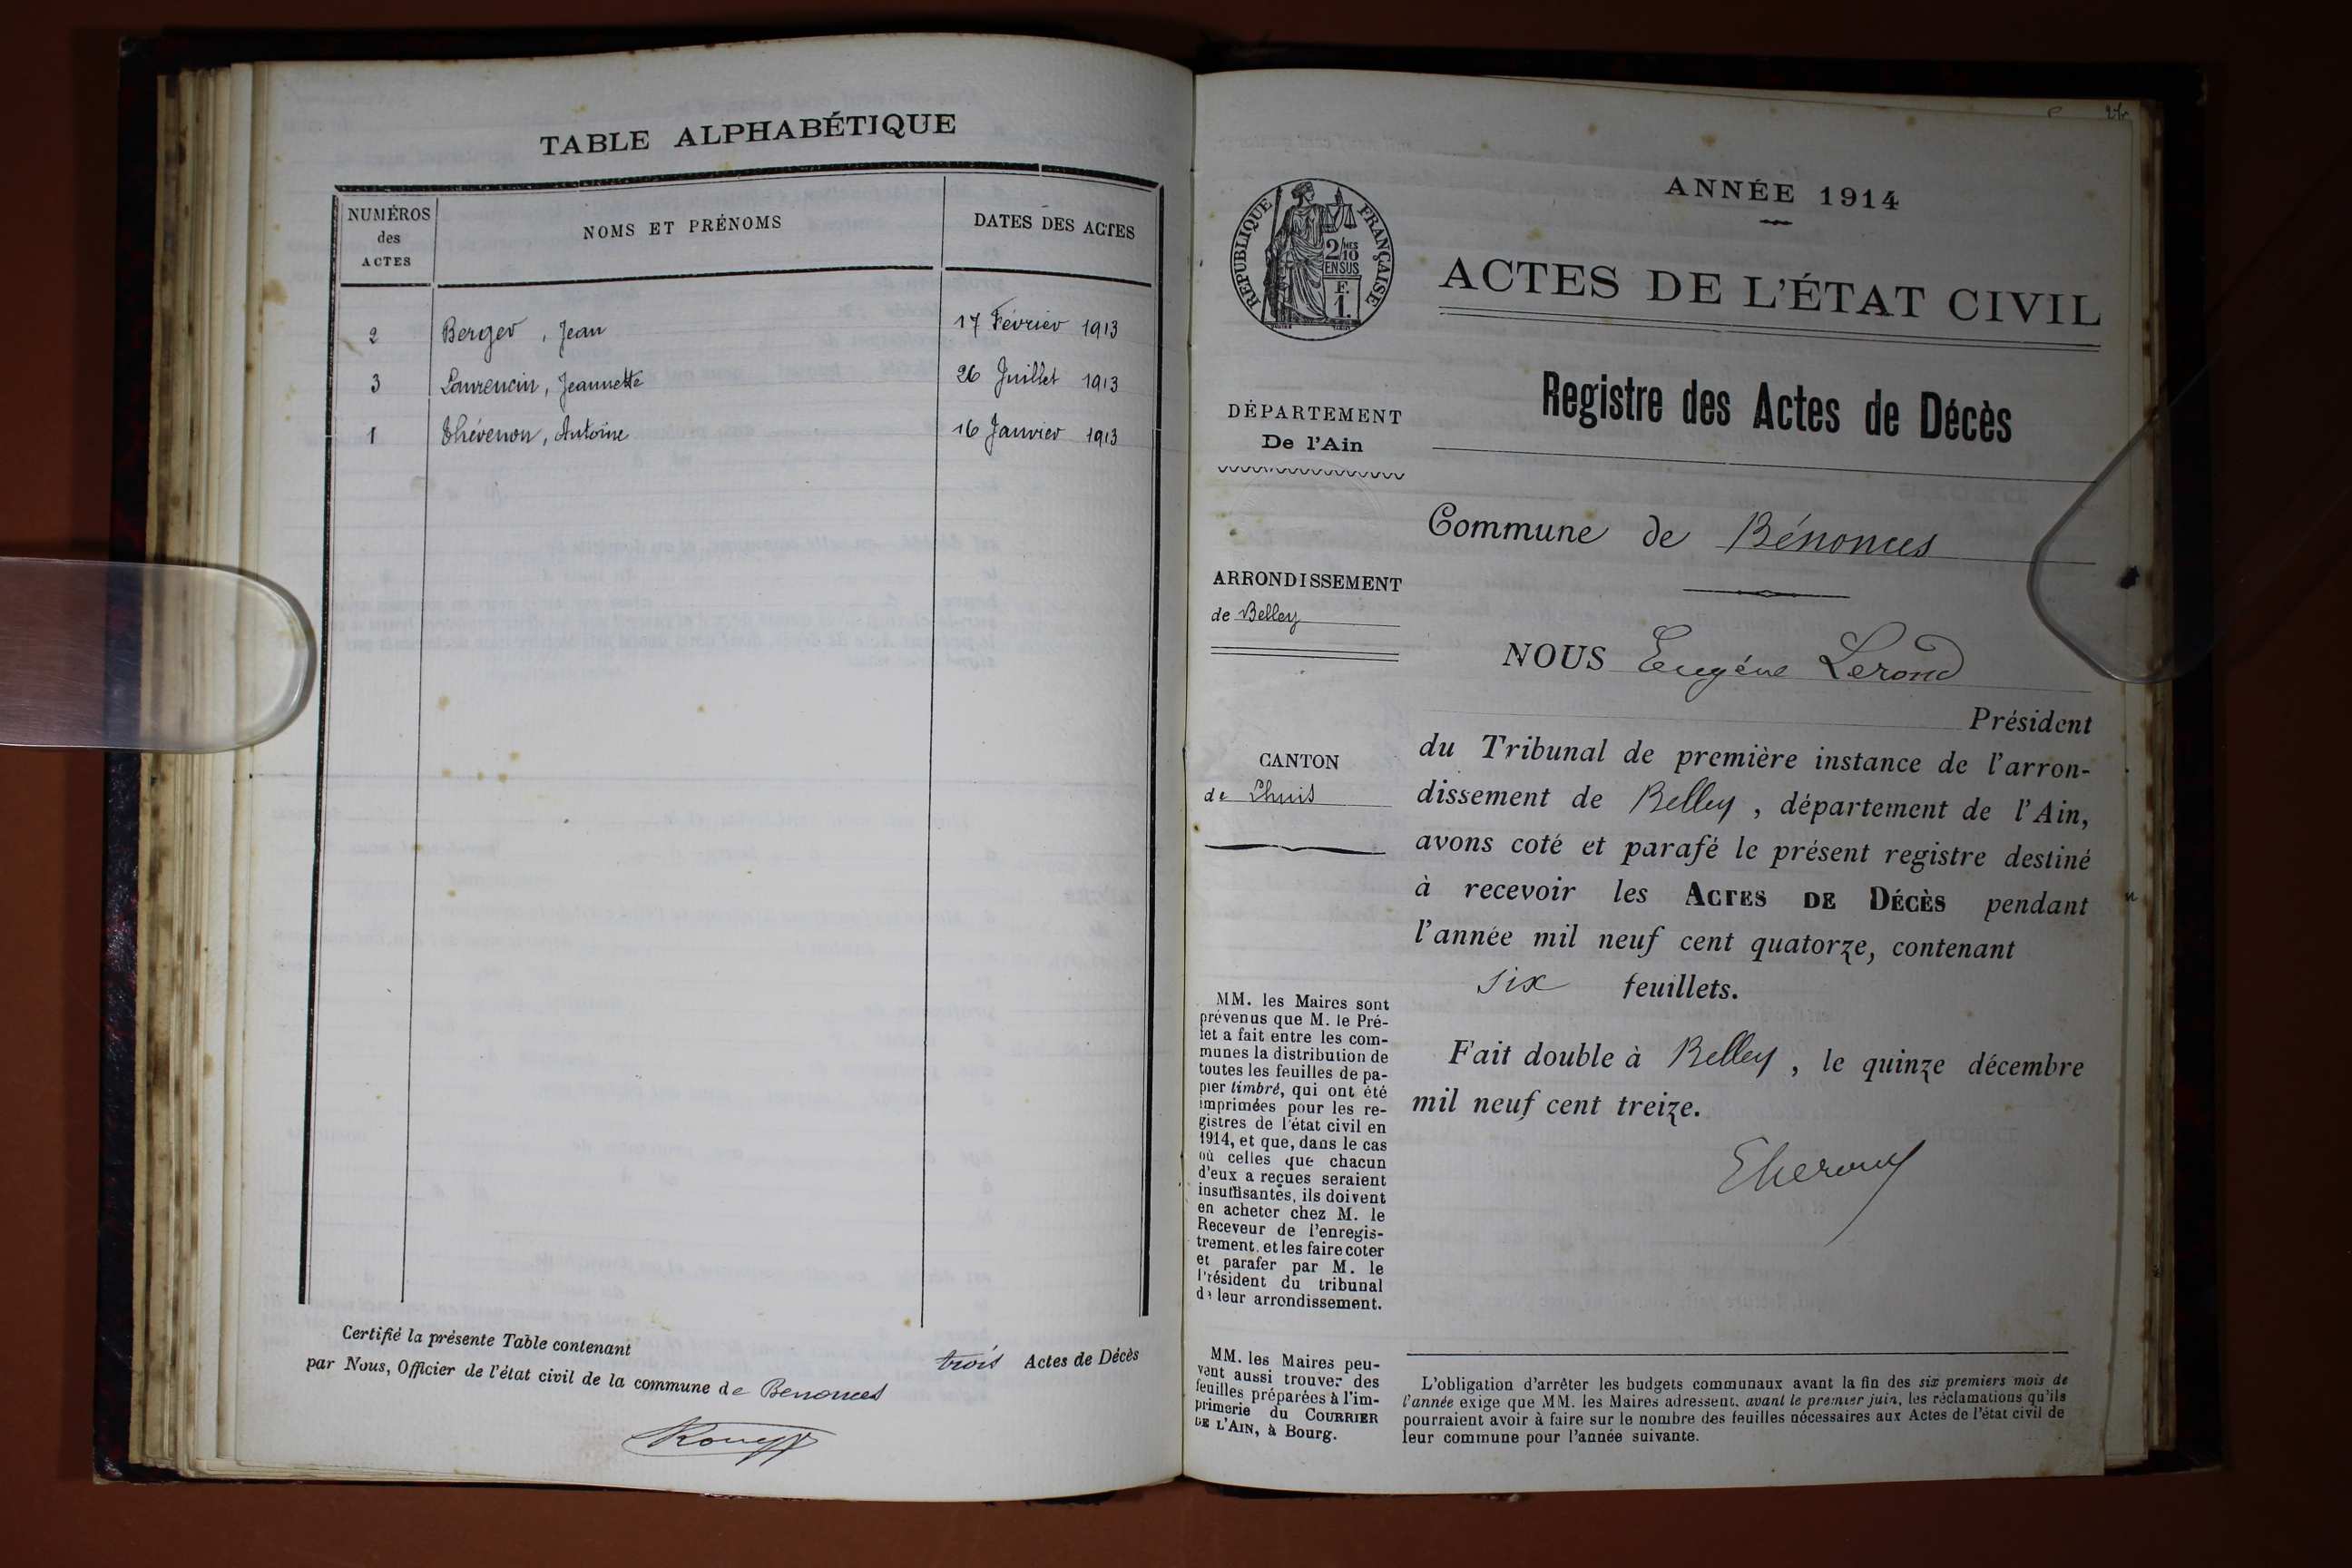 TABLE ALPHABÉTIQUE
NUMÉROS
des
ACTES
NOMS ET PRÉNOMS
DATES DES ACTES
2 Berger, Jean 17 Février 1913
3 Laurencin, Jeannette 26 Juillet 1913
1 Thévenon, Antoine 16 Janvier 1913
Certifié la présente Table contenant trois Actes de Décès
par Nous, Officier de l'état civil de la commune de Benonces
ANNÉE 1914
RÉPUBLIQUE FRANÇAISE
2/10
MES
EN SUS
F.
1.
ACTES DE L'ÉTAT CIVIL
Registre des Actes de Décès
DÉPARTEMENT
De l'Ain
Commune de Bénonces
ARRONDISSEMENT
de Belley
NOUS Eugéne Lerond
Président
CANTON
de Lhuis
du Tribunal de première instance de l'arron-
dissement de Belley, département de l'Ain,
avons coté et parafé le présent registre destiné
à recevoir les ACTES DE DÉCÈS pendant
l'année mil neuf cent quatorze, contenant
six feuillets.
Fait double à Belley, le quinze décembre
mil neuf cent treize.
MM. les Maires sont
prévenus que M. le Pré-
fet a fait entre les com-
munes la distribution de
toutes les feuilles de pa-
pier timbré, qui ont été
imprimées pour les re-
gistres de l'état civil en
1914, et que, dans le cas
où celles que chacun
d'eux a reçues seraient
insuffisantes, ils doivent
en acheter chez M. le
Receveur de l'enregis-
trement, et les faire coter
et parafer par M. le
Président du tribunal
de leur arrondissement.
MM. les Maires peu-
vent aussi trouver des
feuilles préparées à l'im-
primerie du COURRIER
DE L'AIN, à Bourg.
L'obligation d'arrêter les budgets communaux avant la fin des six premiers mois de
l'année exige que MM. les Maires adressent, avant le premier juin, les réclamations qu'ils
pourraient avoir à faire sur le nombre des feuilles nécessaires aux Actes de l'état civil de
leur commune pour l'année suivante.